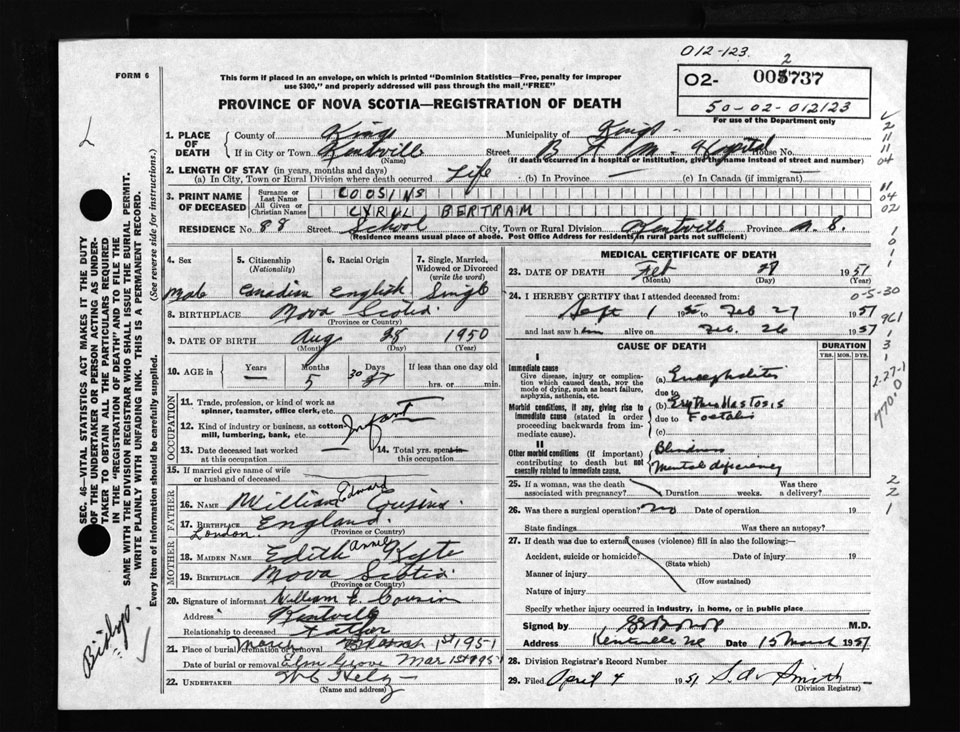 012-123
2
FORM 6
This form if placed in an envelope, on which is printed "Dominion Statistics—Free, penalty for improper
use $300," and properly addressed will pass through the mail "FREE"
PROVINCE OF NOVA SCOTIA—REGISTRATION OF DEATH
02- 005737
50-02-012123
For use of the Department only
1. PLACE OF DEATH
County of Kings Municipality of Kings
If in City or Town Kentville Street B F M Hospital House No.
(Name) (If death occurred in a hospital or institution, give the name instead of street and number)
2. LENGTH OF STAY (in years, months and days)
(a) In City, Town or Rural Division where death occurred Life (b) In Province — (c) In Canada (if immigrant) —
3. PRINT NAME OF DECEASED
Surname or Last Name COOSINS
All Given or Christian Names CYRIL BERTRAM
RESIDENCE No. 88 Street School City, Town or Rural Division Kentville Province N. S.
(Residence means usual place of abode. Post Office Address for residents in rural parts not sufficient)
4. Sex
5. Citizenship (Nationality)
6. Racial Origin
7. Single, Married, Widowed or Divorced (write the word)
Male Canadian English Single
8. BIRTHPLACE Nova Scotia
(Province or Country)
9. DATE OF BIRTH Aug 28 1950
(Month) (Day) (Year)
10. AGE in Years — Months 5 Days 30 If less than one day old
hrs. or min.
OCCUPATION
11. Trade, profession, or kind of work as
spinner, teamster, office clerk, etc.
12. Kind of industry or business, as cotton
mill, lumbering, bank, etc. Infant
13. Date deceased last worked
at this occupation —
14. Total yrs. spent in
this occupation —
15. If married give name of wife
or husband of deceased
FATHER
16. Name William Edward Cousins
17. Birthplace England
London
MOTHER
18. MAIDEN NAME Edith
19. BIRTHPLACE Nova Scotia
(Province or Country)
20. Signature of informant William E. Cousin
Address Kentville
Relationship to deceased Father
21. Place of burial, cremation or removal March 1st 1951
Date of burial or removal Elm Grove Mar 1st 1951
22. UNDERTAKER
(Name and address)
MEDICAL CERTIFICATE OF DEATH
23. DATE OF DEATH Feb 28 1951
(Month) (Day) (Year)
24. I HEREBY CERTIFY that I attended deceased from:
Sept 1 1950 to Feb 27 1951
and last saw him alive on Feb. 26 1951
CAUSE OF DEATH
DURATION
YRS. MOS. DYS.
I
Immediate cause
Give disease, injury or complica-
tion which caused death, not the
mode of dying, such as heart failure,
asphyxia, asthenia, etc.
(a) Encephalitis
due to
Morbid conditions, if any, giving rise to
immediate cause (stated in order
proceeding backwards from im-
mediate cause).
(b) Erythroblastosis
due to Foetalis
(c)
II
Other morbid conditions (if important)
contributing to death but not
causally related to immediate cause.
Blindness
Mental deficiency
25. If a woman, was the death
associated with pregnancy? Duration weeks. Was there
a delivery?
26. Was there a surgical operation? no Date of operation 19
State findings Was there an autopsy?
27. If death was due to external causes (violence) fill in also the following:—
Accident, suicide or homicide? Date of injury 19
(State which)
Manner of injury
(How sustained)
Nature of injury
Specify whether injury occurred in industry, in home, or in public place
Signed by M.D.
Address Kentville NS Date 15 March 1951
28. Division Registrar's Record Number
29. Filed April 4 1951 Smith
(Division Registrar)
SEC. 46—VITAL STATISTICS ACT MAKES IT THE DUTY
OF THE UNDERTAKER OR PERSON ACTING AS UNDER-
TAKER TO OBTAIN ALL THE PARTICULARS REQUIRED
IN THE "REGISTRATION OF DEATH" AND TO FILE THE
SAME WITH THE DIVISION REGISTRAR WHO SHALL ISSUE THE BURIAL PERMIT.
WRITE PLAINLY WITH UNFADING INK. THIS IS A PERMANENT RECORD.
Every item of information should be carefully supplied. (See reverse side for instructions.)
2
11
11
04
11
04
02
1
0
1
1
0-5-30
961
1
3
1
2-27-1
7700
2
2
1